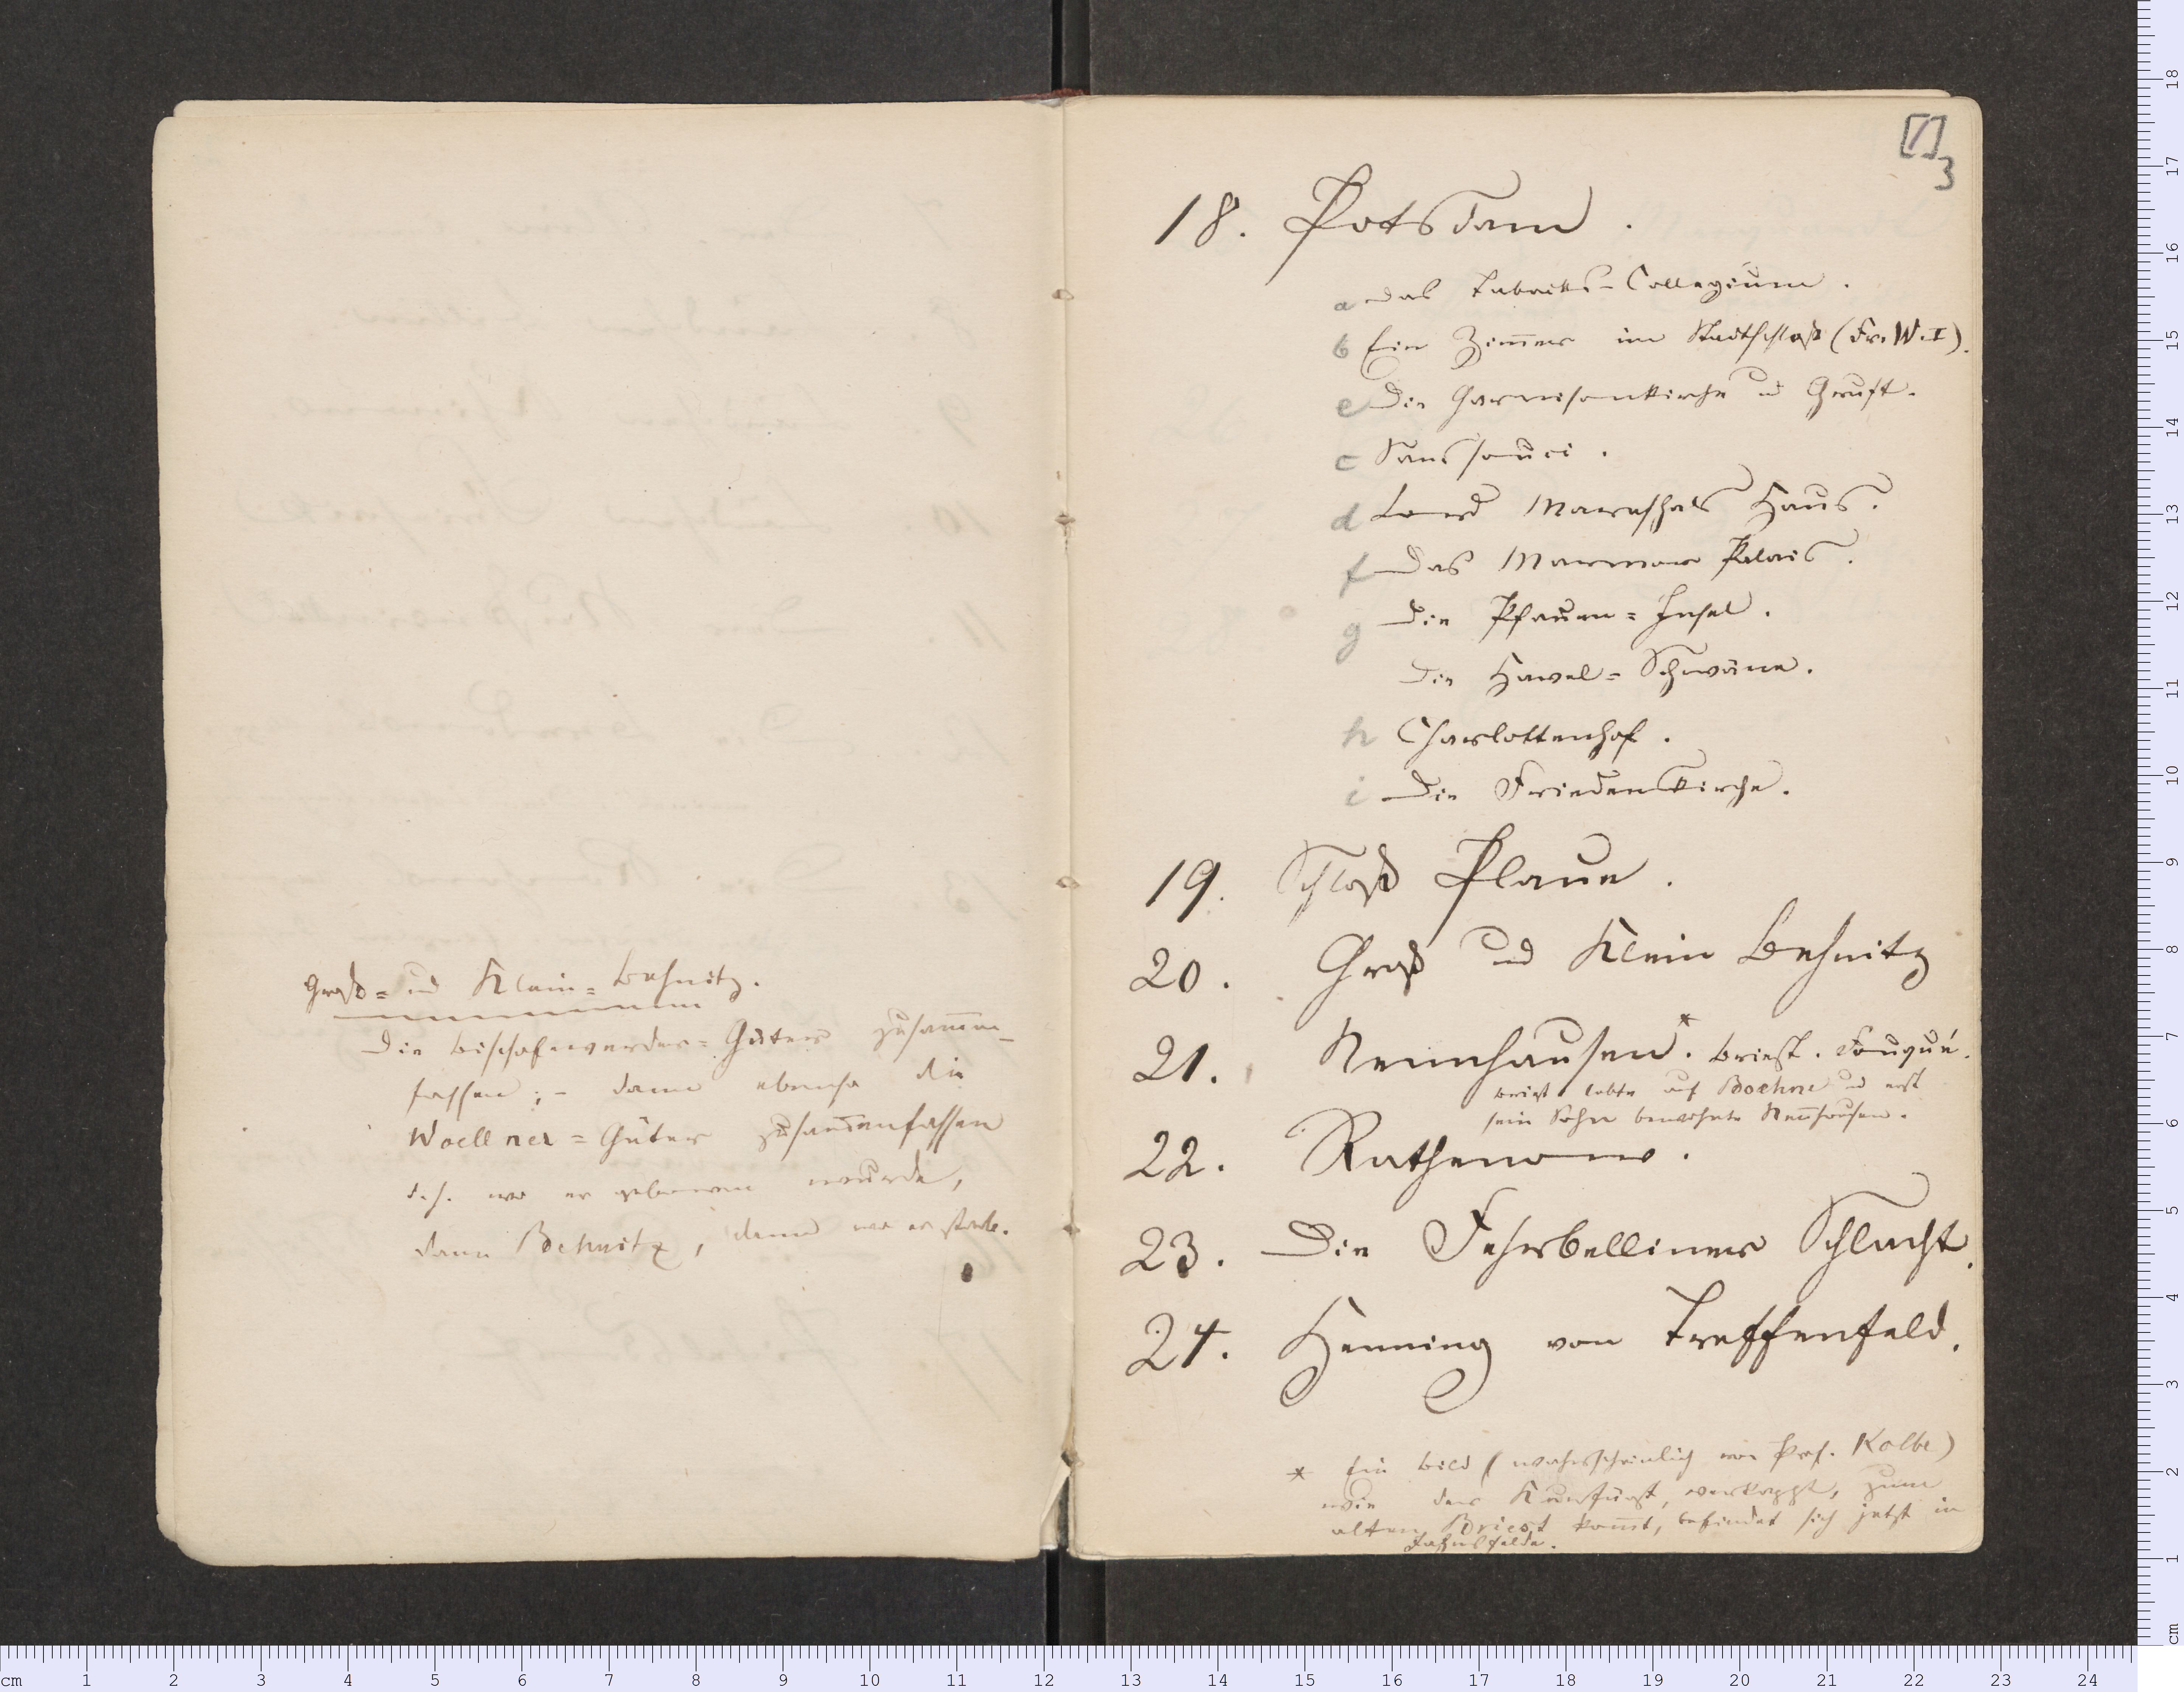 Groß= und Klein=Behnitz.
Die Bischofswerder=Güter zusammen-
fassen; – dann ebenso die
Woellner=Güter zusam̄enfassen
d. h. wo er geboren wurde,
dann Behnitz, dann wo er starb.
[1]
3
18. Potsdam.
a Das Tabacks-Collegium.
b Ein Zim̄er im Stadtschloß (Fr. W. I).
e Die Garnisonkirche u Gruft.
c Sanssouci.
d Lord Mareschals Haus.
f Das Marmor Palais.
g Die Pfauen=Insel.
Die Havel=Schwäne.
h Charlottenhof.
i Die Friedenskirche.
19. Schloß Plaue.
20. Groß und Klein Behnitz
21. Nennhausen.* Briest. Fouqué.
Briest lebte auf Boehne und erst
sein Sohn bewohnte Nen̄hausen.
22. Rathenow.
23. Die Fehrbelliner Schlacht.
24. Henning von Treffenfeld.
* Ein Bild (wahrscheinlich von Prf. Kolbe)
wie der Kurfürst, verkappt, zum
alten Briest kom̄t, befindet sich jetzt in